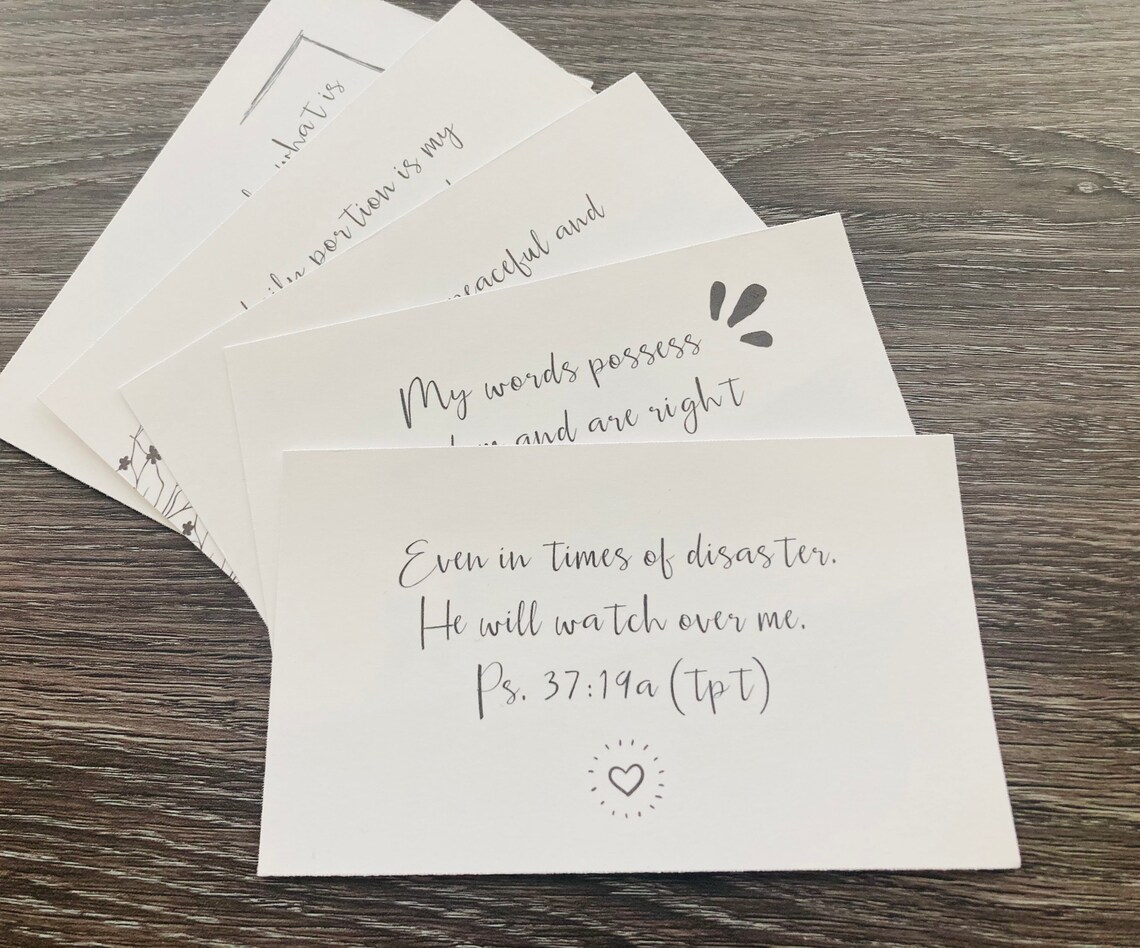 Even in times of disaster.
He will watch over me.
Ps. 37:19a (tpt)
My words possess
and are right
peaceful and
portion is my
what is